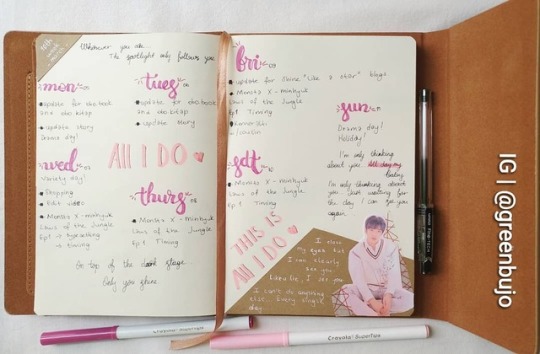 Wherever you are
The spotlight only follows you
mon
update for
and
update story
Drama day!
tues
update for
and
update story
wed
Variety day!
Shopping
Edit video
Monsta X - minhyuk
Laws of the Jungle
Ep 1
timing
ALL I DO
thurs
Monsta X - minhyuk
Laws of the Jungle
Ep 1 Timing
On top of the dark stage
Only you shine
fri
update for "Like a star"
Monsta X - minhyuk
Laws of the Jungle
Ep 1 Timing
sun
Drama day!
Holiday!
I'm only thinking
about you
baby
I'm only thinking about
you. Just waiting for
the day I can see you
again
sat
Monsta X - minhyuk
Laws of the Jungle
Ep 1 Timing
THIS IS
ALL I DO
I close
my eyes but
I can clearly
see you
I see you
I can't do anything
else. Every single
day
Crayola SuperTips
Crayola SuperTips
IG | @greenbujo